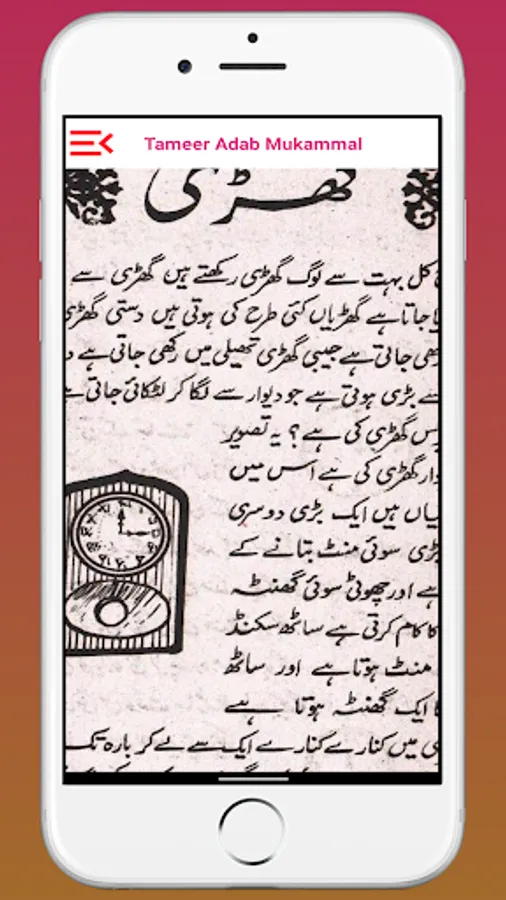 Tameer Adab Mukammal
گھڑی
کل بہت سے لوگ گھڑی رکھتے ہیں گھڑی سے
جاتا ہے گھڑیاں کئی طرح کی ہوتی ہیں دستی گھڑی
جاتی ہے جیبی گھڑی تھیلی میں رکھی جاتی ہے
سے بڑی ہوتی ہے جو دیوار سے لگا کر لٹکائی جاتی ہے
س گھڑی کی ہے؟ یہ تصویر
دار گھڑی کی ہے اس میں
یاں ہیں ایک بڑی دوسری
بڑی سوئی منٹ بتانے کے
ہے اور چھوٹی سوئی گھنٹہ
کا کام کرتی ہے ساٹھ سکنڈ
منٹ ہوتا ہے اور ساٹھ
ایک گھنٹہ ہوتا ہے
میں کنارے کنارے ایک سے لے کر بارہ تک